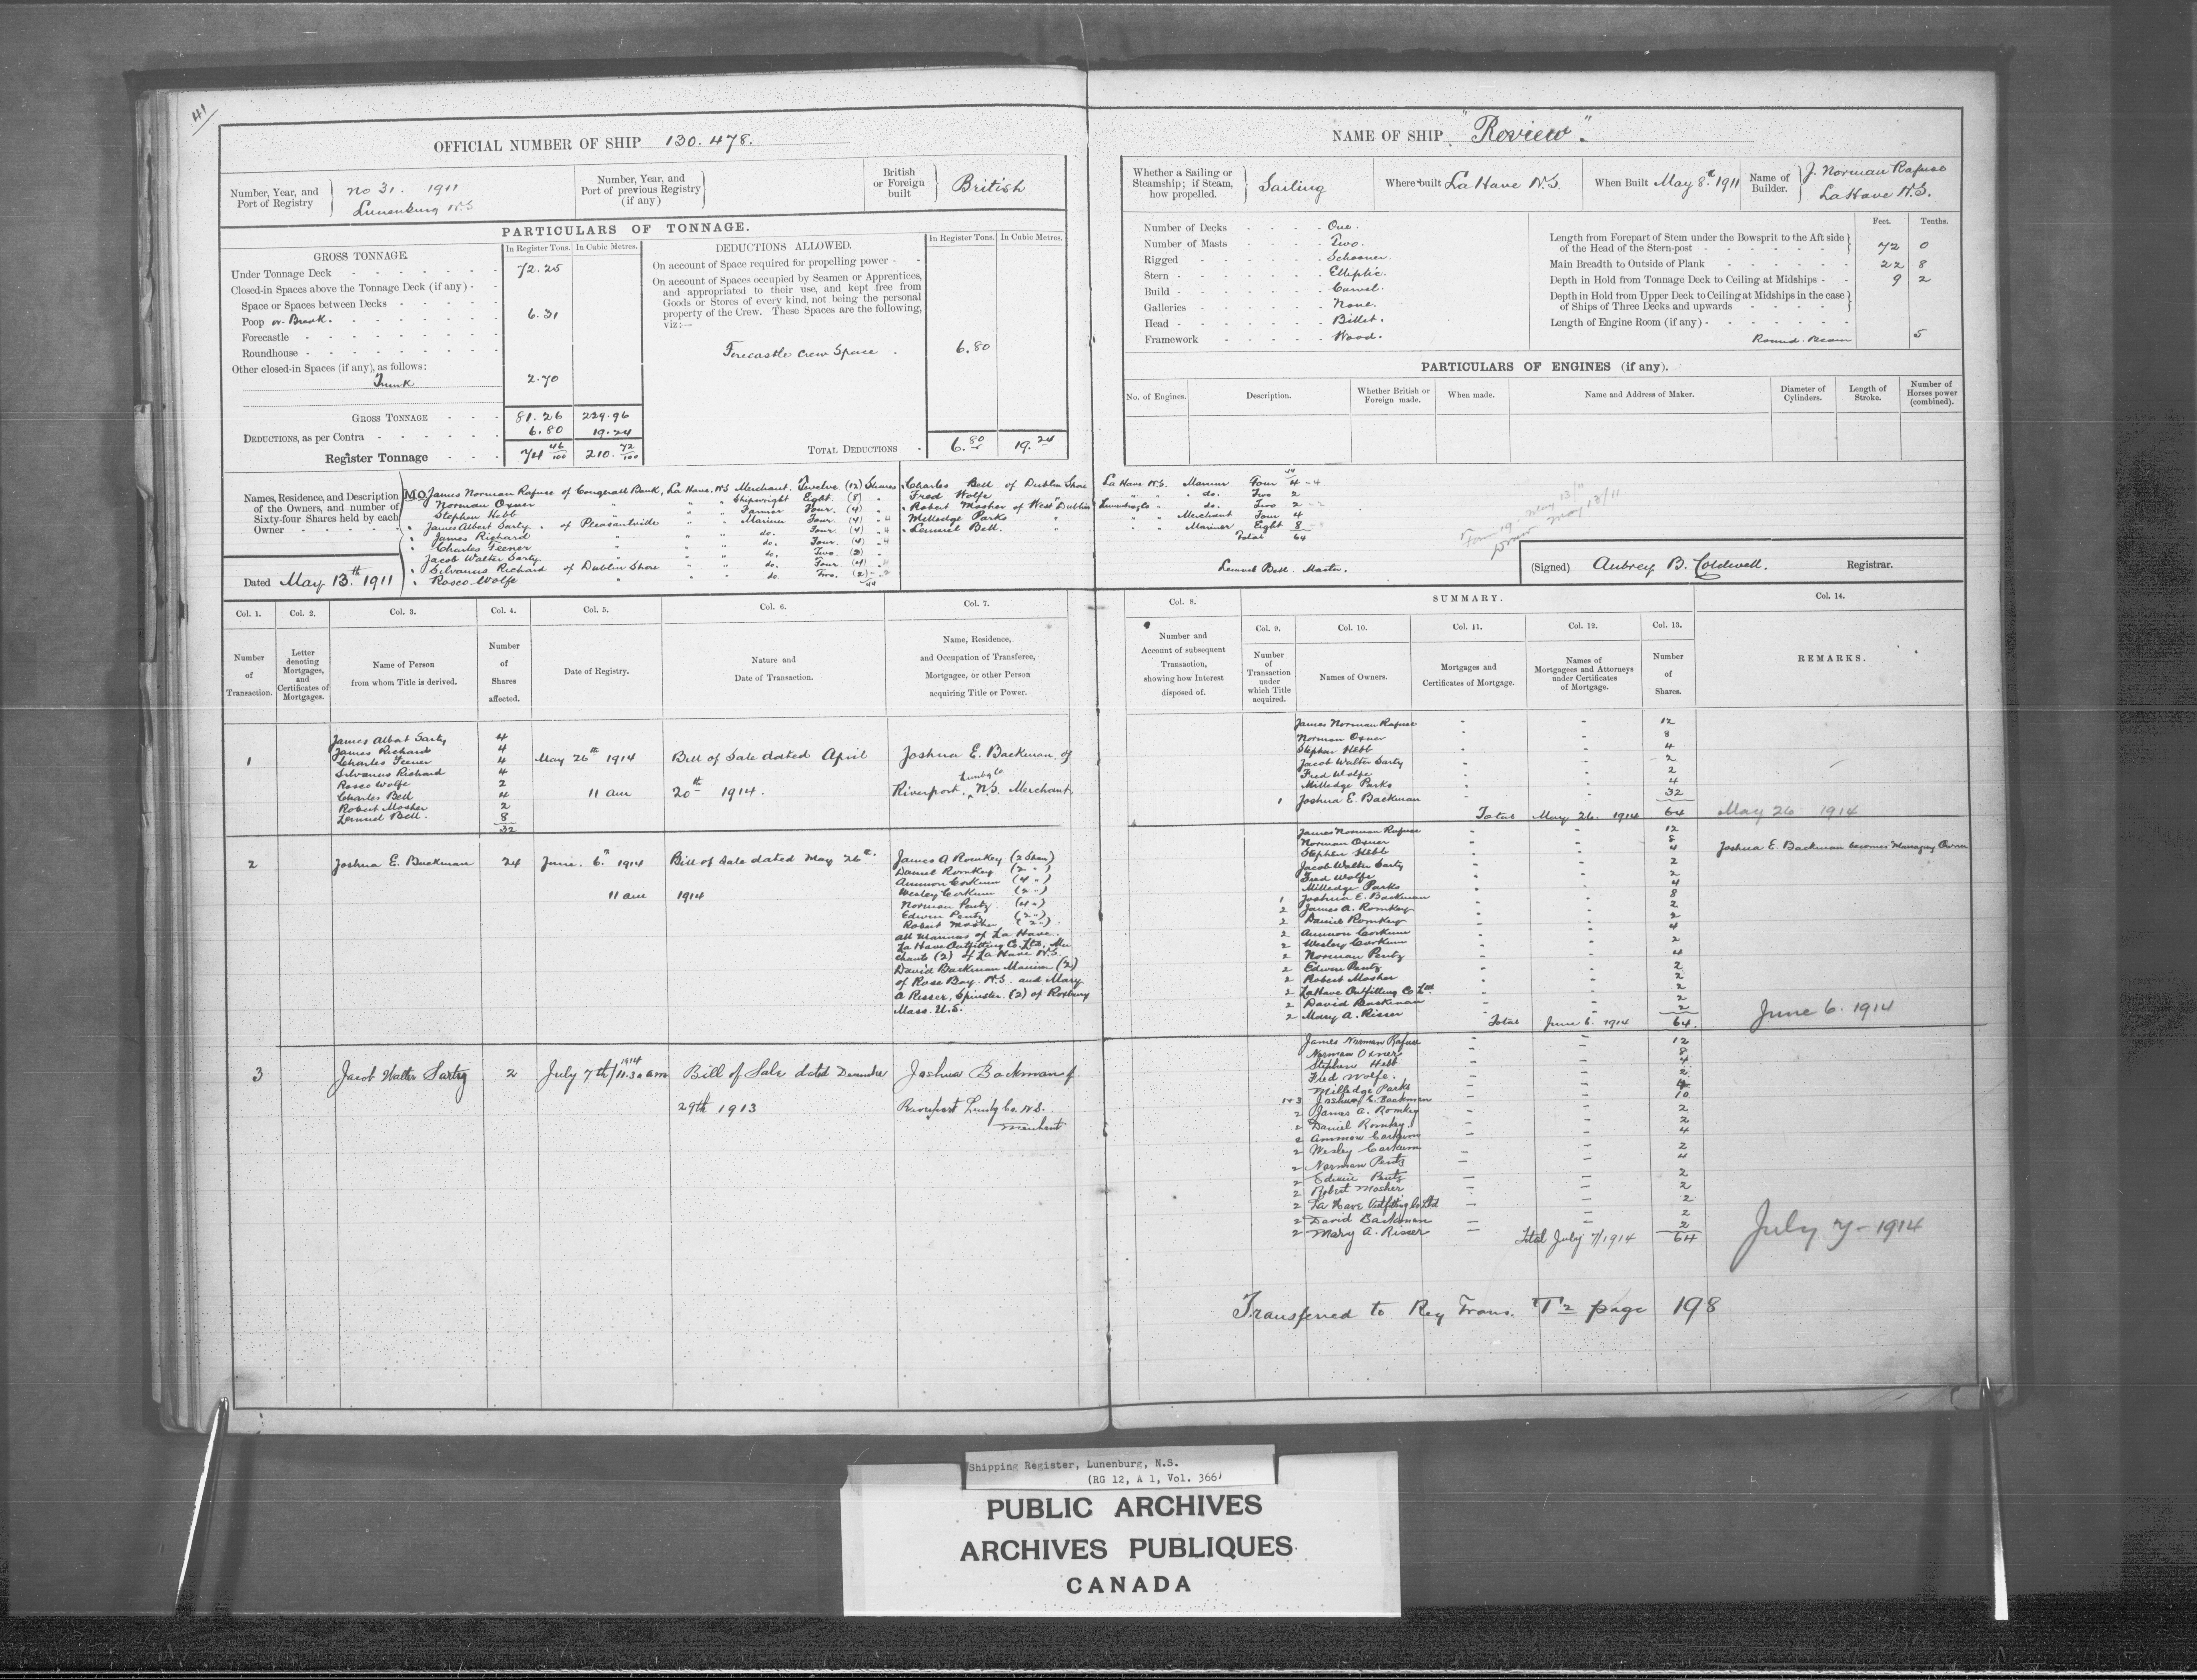 41
OFFICIAL NUMBER OF SHIP 130.478.
Number, Year, and Port of Registry } No 31. 1911 Lunenburg N.S
Number, Year, and Port of previous Registry (if any) }
British or Foreign built } British
PARTICULARS OF TONNAGE.
GROSS TONNAGE. In Register Tons. In Cubic Metres.
Under Tonnage Deck 72.25
Closed-in Spaces above the Tonnage Deck (if any)
Space or Spaces between Decks
Poop or Break. 6.31
Forecastle
Roundhouse
Other closed-in Spaces (if any), as follows:
Trunk 2.70
GROSS TONNAGE 81.26 229.96
DEDUCTIONS, as per Contra 6.80 19.24
Register Tonnage 74 46/100 210. 72/100
DEDUCTIONS ALLOWED. In Register Tons. In Cubic Metres.
On account of Space required for propelling power
On account of Spaces occupied by Seamen or Apprentices, and appropriated to their use, and kept free from Goods or Stores of every kind, not being the personal property of the Crew. These Spaces are the following, viz:—
Forecastle Crew Space 6.80
TOTAL DEDUCTIONS 6.80 19.24
Names, Residence, and Description of the Owners, and number of Sixty-four Shares held by each Owner
M.O. James Norman Rafuse of Conquerall Bank, La Have. N.S Merchant. Twelve (12) Shares
Norman Oxner " " " Shipwright Eight. (8) "
Stephen Hebb " " " Farmer Four. (4) "
James Albert Sarty of Pleasantville " " Mariner Four. (4) " 4
James Richard " " " do. Four. (4) " 4
Charles Feener " " " do. Four. (4) " 4
Jacob Walter Sarty " " " do. Two. (2) "
Silvanus Richard of Dublin Shore " " do. Four (4) " 4
Rosco Wolfe " " " do. Two. (2) " 2
44
Charles Bell of Dublin Shore La Have N.S. Mariner Four 4 - 4
Fred Wolfe " " " do. Two 2
Robert Mosher of West Dublin Lunenburg Co " do. Two 2 - 2
Milledge Parks " " " Merchant Four 4
Lemuel Bell. " " " Mariner Eight 8
Total 64
Dated May 13.th 1911
Lemuel Bell. Master.
(Signed) Aubrey B. Coldwell. Registrar.
NAME OF SHIP "Review".
Whether a Sailing or Steamship; if Steam, how propelled. } Sailing
Where built La Have N.S.
When Built May 8.th 1911
Name of Builder. } J. Norman Rafuse La Have N.S.
Number of Decks One.
Number of Masts Two.
Rigged Schooner.
Stern Elliptic.
Build Carvel.
Galleries None.
Head Billet.
Framework Wood.
Feet. Tenths.
Length from Forepart of Stem under the Bowsprit to the Aft side of the Head of the Stern-post 72 0
Main Breadth to Outside of Plank 22 8
Depth in Hold from Tonnage Deck to Ceiling at Midships 9 2
Depth in Hold from Upper Deck to Ceiling at Midships in the case of Ships of Three Decks and upwards
Length of Engine Room (if any)
Round. Beam 5
PARTICULARS OF ENGINES (if any).
No. of Engines. Description. Whether British or Foreign made. When made. Name and Address of Maker. Diameter of Cylinders. Length of Stroke. Number of Horses power (combined).
Col. 1. Col. 2. Col. 3. Col. 4. Col. 5. Col. 6. Col. 7. Col. 8. SUMMARY. Col. 14.
Col. 9. Col. 10. Col. 11. Col. 12. Col. 13.
Number of Transaction.
Letter denoting Mortgages, and Certificates of Mortgages.
Name of Person from whom Title is derived.
Number of Shares affected.
Date of Registry.
Nature and Date of Transaction.
Name, Residence, and Occupation of Transferee, Mortgagee, or other Person acquiring Title or Power.
Number and Account of subsequent Transaction, showing how Interest disposed of.
Number of Transaction under which Title acquired.
Names of Owners.
Mortgages and Certificates of Mortgage.
Names of Mortgagees and Attorneys under Certificates of Mortgage.
Number of Shares.
REMARKS.
1
James Albert Sarty 4
James Richard 4
Charles Feener 4
Silvanus Richard 4
Rosco Wolfe 2
Charles Bell 4
Robert Mosher 2
Lemuel Bell. 8
32
May 26th 1914 11 am
Bill of Sale dated April 20th 1914.
Joshua E. Backman of Riverport, Lunbg Co N.S. Merchant
James Norman Rafuse 12
Norman Oxner 8
Stephen Hebb 4
Jacob Walter Sarty 2
Fred Wolfe 2
Milledge Parks 4
1 Joshua E. Backman 32
Total May 26. 1914 64
May 26 1914
2
Joshua E. Backman 24
June. 6th 1914 11 am
Bill of Sale dated May 26th. 1914
James A Romkey (2 Shares)
Daniel Romkey (2 ")
Ammon Corkum (4 ")
Wesley Corkum (2 ")
Norman Pentz (4 ")
Edwin Pentz (2 ")
Robert Mosher (2 ")
all Mariners of La Have.
La Have Outfitting Co. Ltd. Mer
chants (2) of La Have N.S.
David Backman Mariner (2)
of Rose Bay. N.S. and Mary
A Risser, Spinster. (2) of Roxbury
Mass. U.S.
James Norman Rafuse 12
Norman Oxner 8
Stephen Hebb 4
Jacob Walter Sarty 2
Fred Wolfe 2
Milledge Parks 4
1 Joshua E. Backman 8
2 James A. Romkey 2
2 Daniel Romkey 2
2 Ammon Corkum 4
2 Wesley Corkum 2
2 Norman Pentz 4
2 Edwin Pentz 2
2 Robert Mosher 2
2 LaHave Outfitting Co Ltd. 2
2 David Backman 2
2 Mary A. Risser 2
Total June 6. 1914 64.
Joshua E. Backman becomes Managing Owner
June 6. 1914
3
Jacob Walter Sarty 2
July 7th 1914 / 11.30 am
Bill of Sale dated December 29th 1913
Joshua Backman of
Riverport Lunbg Co. N.S.
Merchant
James Norman Rafuse 12
Norman Oxner 8
Stephen Hebb 4
Fred. Wolfe. 2
Milledge Parks 4
1+3 Joshua E. Backman 10
2 James A. Romkey 2
2 Daniel Romkey 2
2 Ammon Corkum 4
2 Wesley Corkum 2
2 Norman Pentz 4
2 Edwin Pentz 2
2 Robert Mosher 2
2 La Have Outfitting Co Ltd 2
2 David Backman 2
2 Mary A. Risser 2
Total July 7/1914 64
July 7 - 1914
Transferred to Reg Trans. T2 page 198
Shipping Register, Lunenburg, N.S.
(RG 12, A 1, Vol. 366)
PUBLIC ARCHIVES
ARCHIVES PUBLIQUES
CANADA